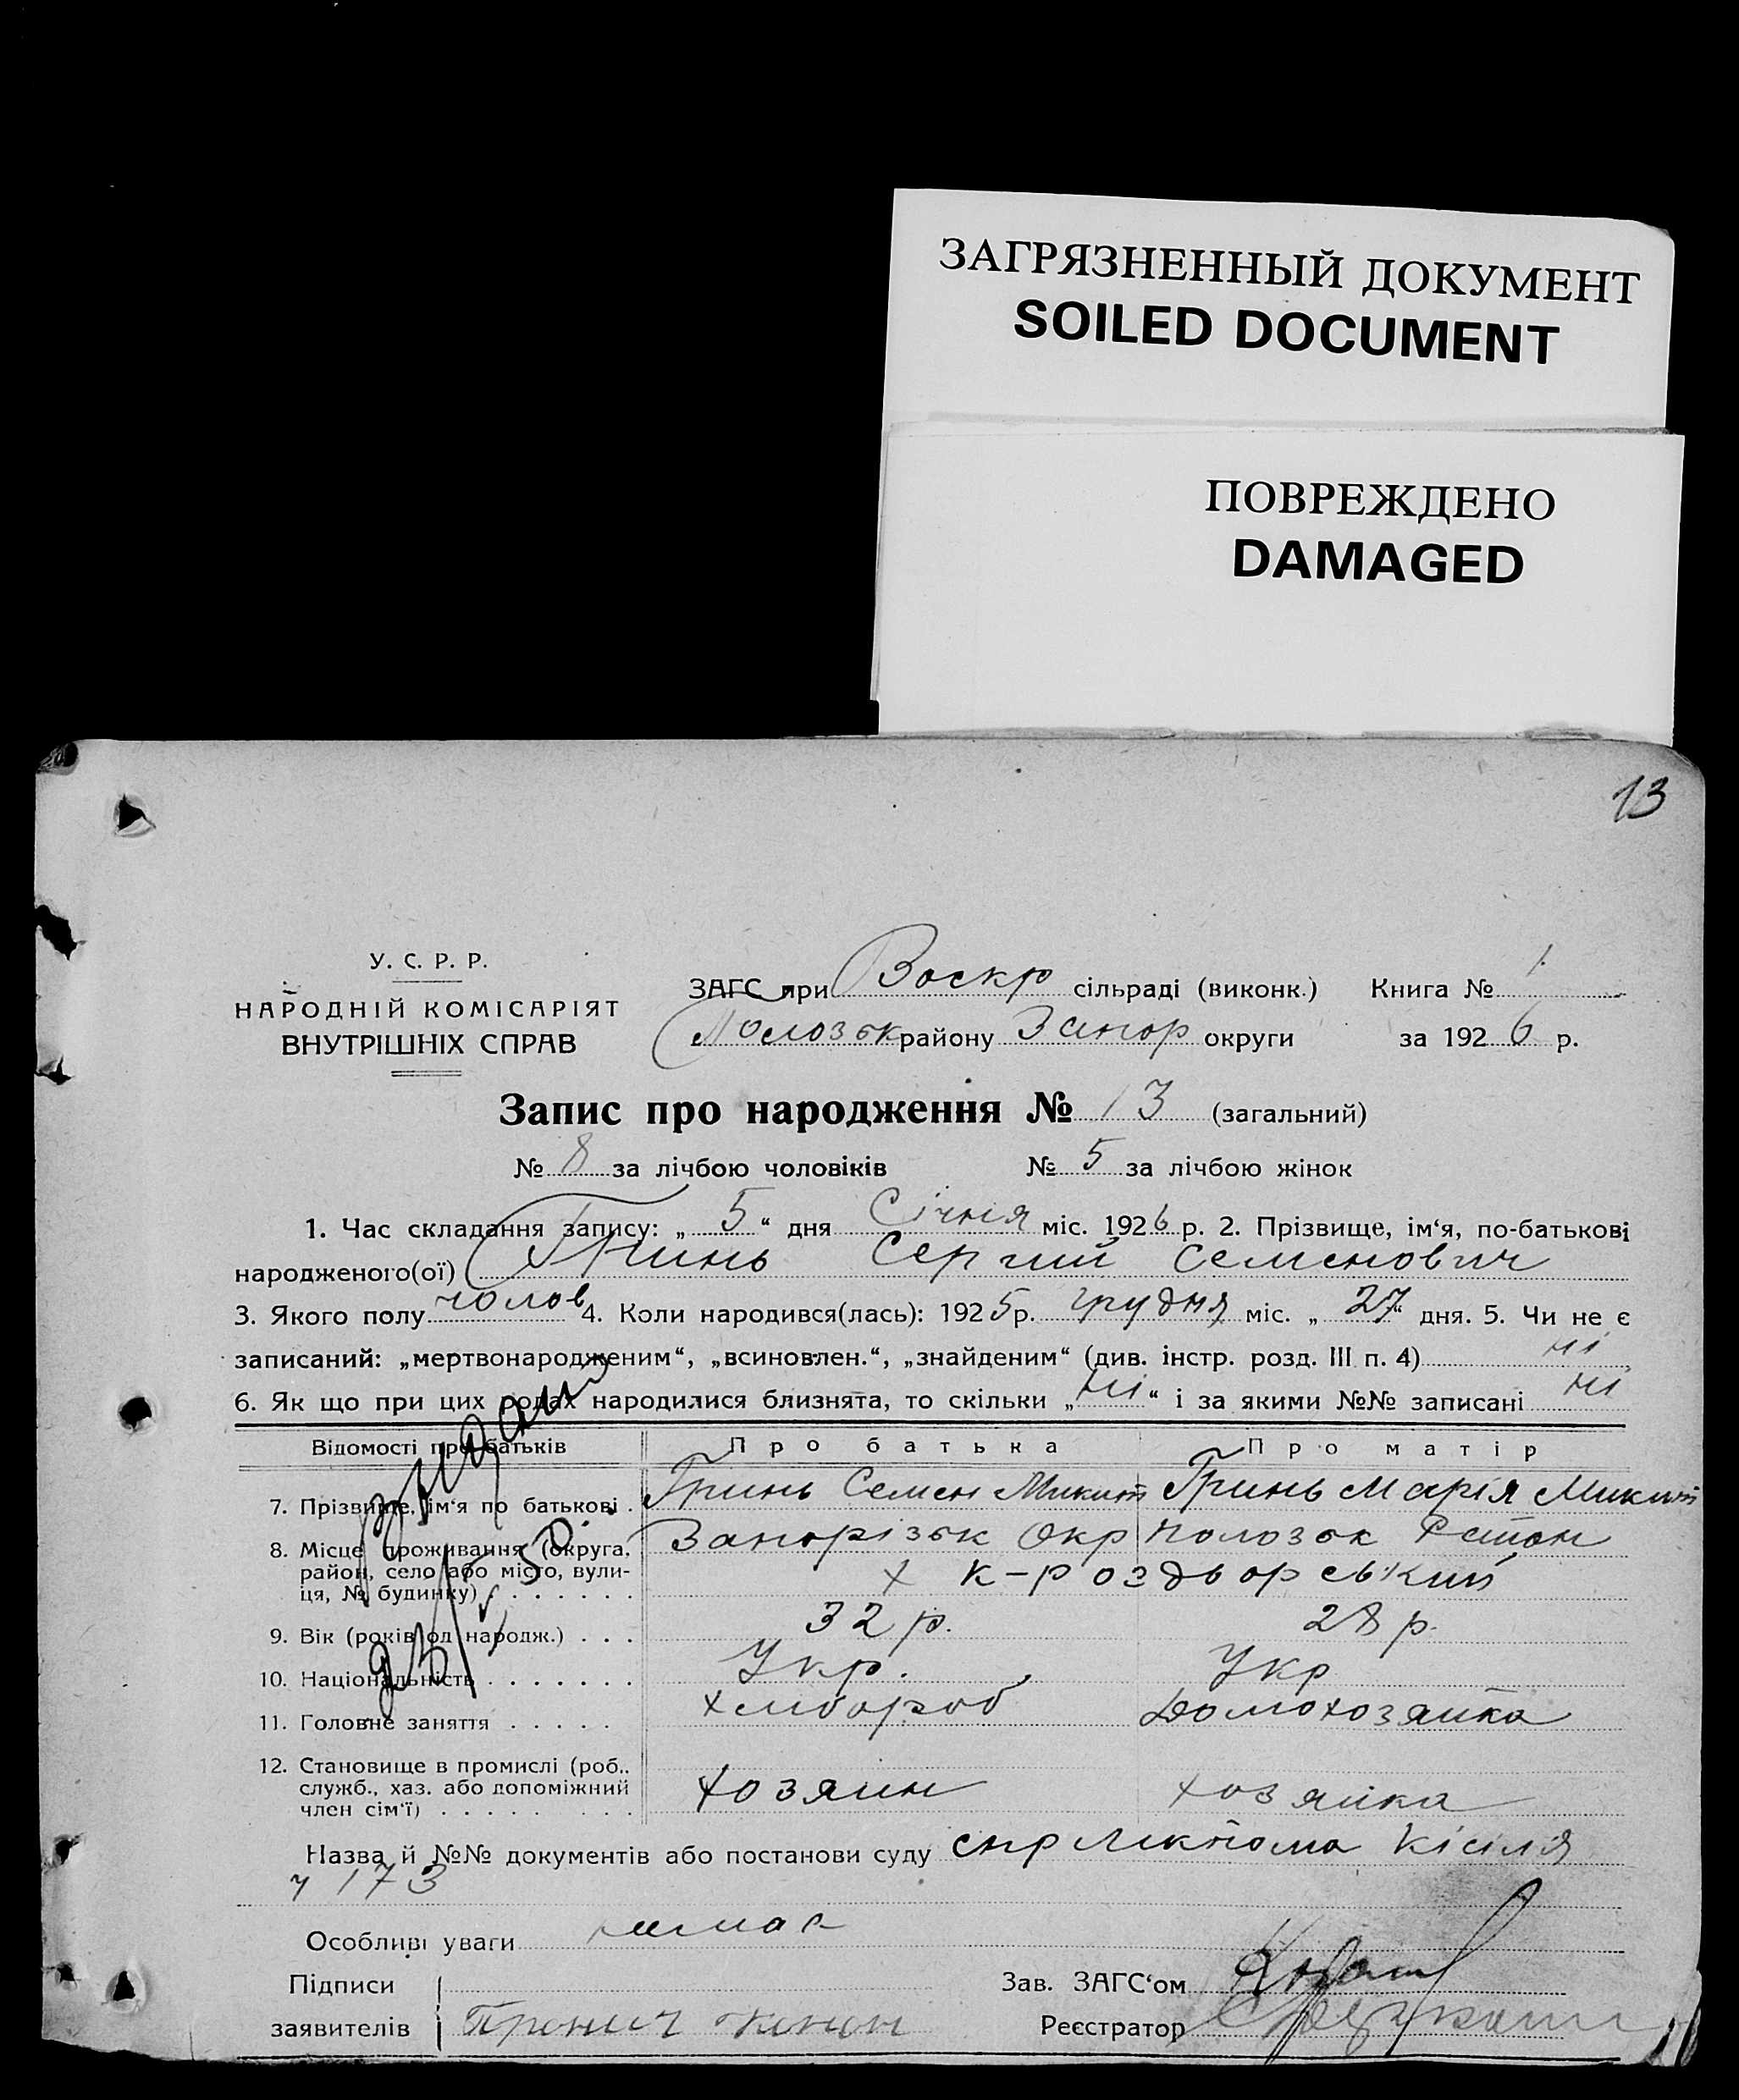 ЗАГРЯЗНЕННЫЙ ДОКУМЕНТ
SOILED DOCUMENT
ПОВРЕЖДЕНО
DAMAGED
13
У. С. Р. Р.
НАРОДНІЙ КОМІСАРІЯТ
ВНУТРІШНІХ СПРАВ
ЗАГС при Воскр сільраді (виконк.) Книга № 1
Полозьк району Запор округи за 1926 р.
Запис про народження № 13 (загальний)
№ 8 за лічбою чоловіків № 5 за лічбою жінок
1. Час складання запису: „ 5 “ дня Січня міс. 1926 р. 2. Прізвище, ім‘я, по-батькові
народженого(ої) Гринь Сергий Семенович
3. Якого полу чолов 4. Коли народився(лась): 1925 р. грудня міс. „ 27 “ дня. 5. Чи не є
записаний: „мертвонародженим“, „всиновлен.“, „знайденим“ (див. інстр. розд. III п. 4) ні
6. Як що при цих родах народилися близнята, то скільки „ ні “ і за якими №№ записані ні
Відомості про батьків Про батька Про матір
7. Прізвище, ім‘я по батькові . Гринь Семен Микит Гринь Марія Микит
8. Місце проживання (округа, Запорізьк Окр Полозьк Район
район, село або місто, вули- х к-роздворський
ця, № будинку) . . . . . . .
9. Вік (років од народж.) . . . 32 р. 28 р.
10. Національність . . . . . . . Укр. Укр
11. Головне заняття . . . . . хлибороб Домохозяйка
12. Становище в промислі (роб.,
служб., хаз. або допоміжний хозяин хозяйка
член сім‘ї) . . . . . . . .
Назва й №№ документів або постанови суду спр Кісіля
ч 173
Особливі уваги немає
Підписи Зав. ЗАГС‘ом
заявителів Реєстратор